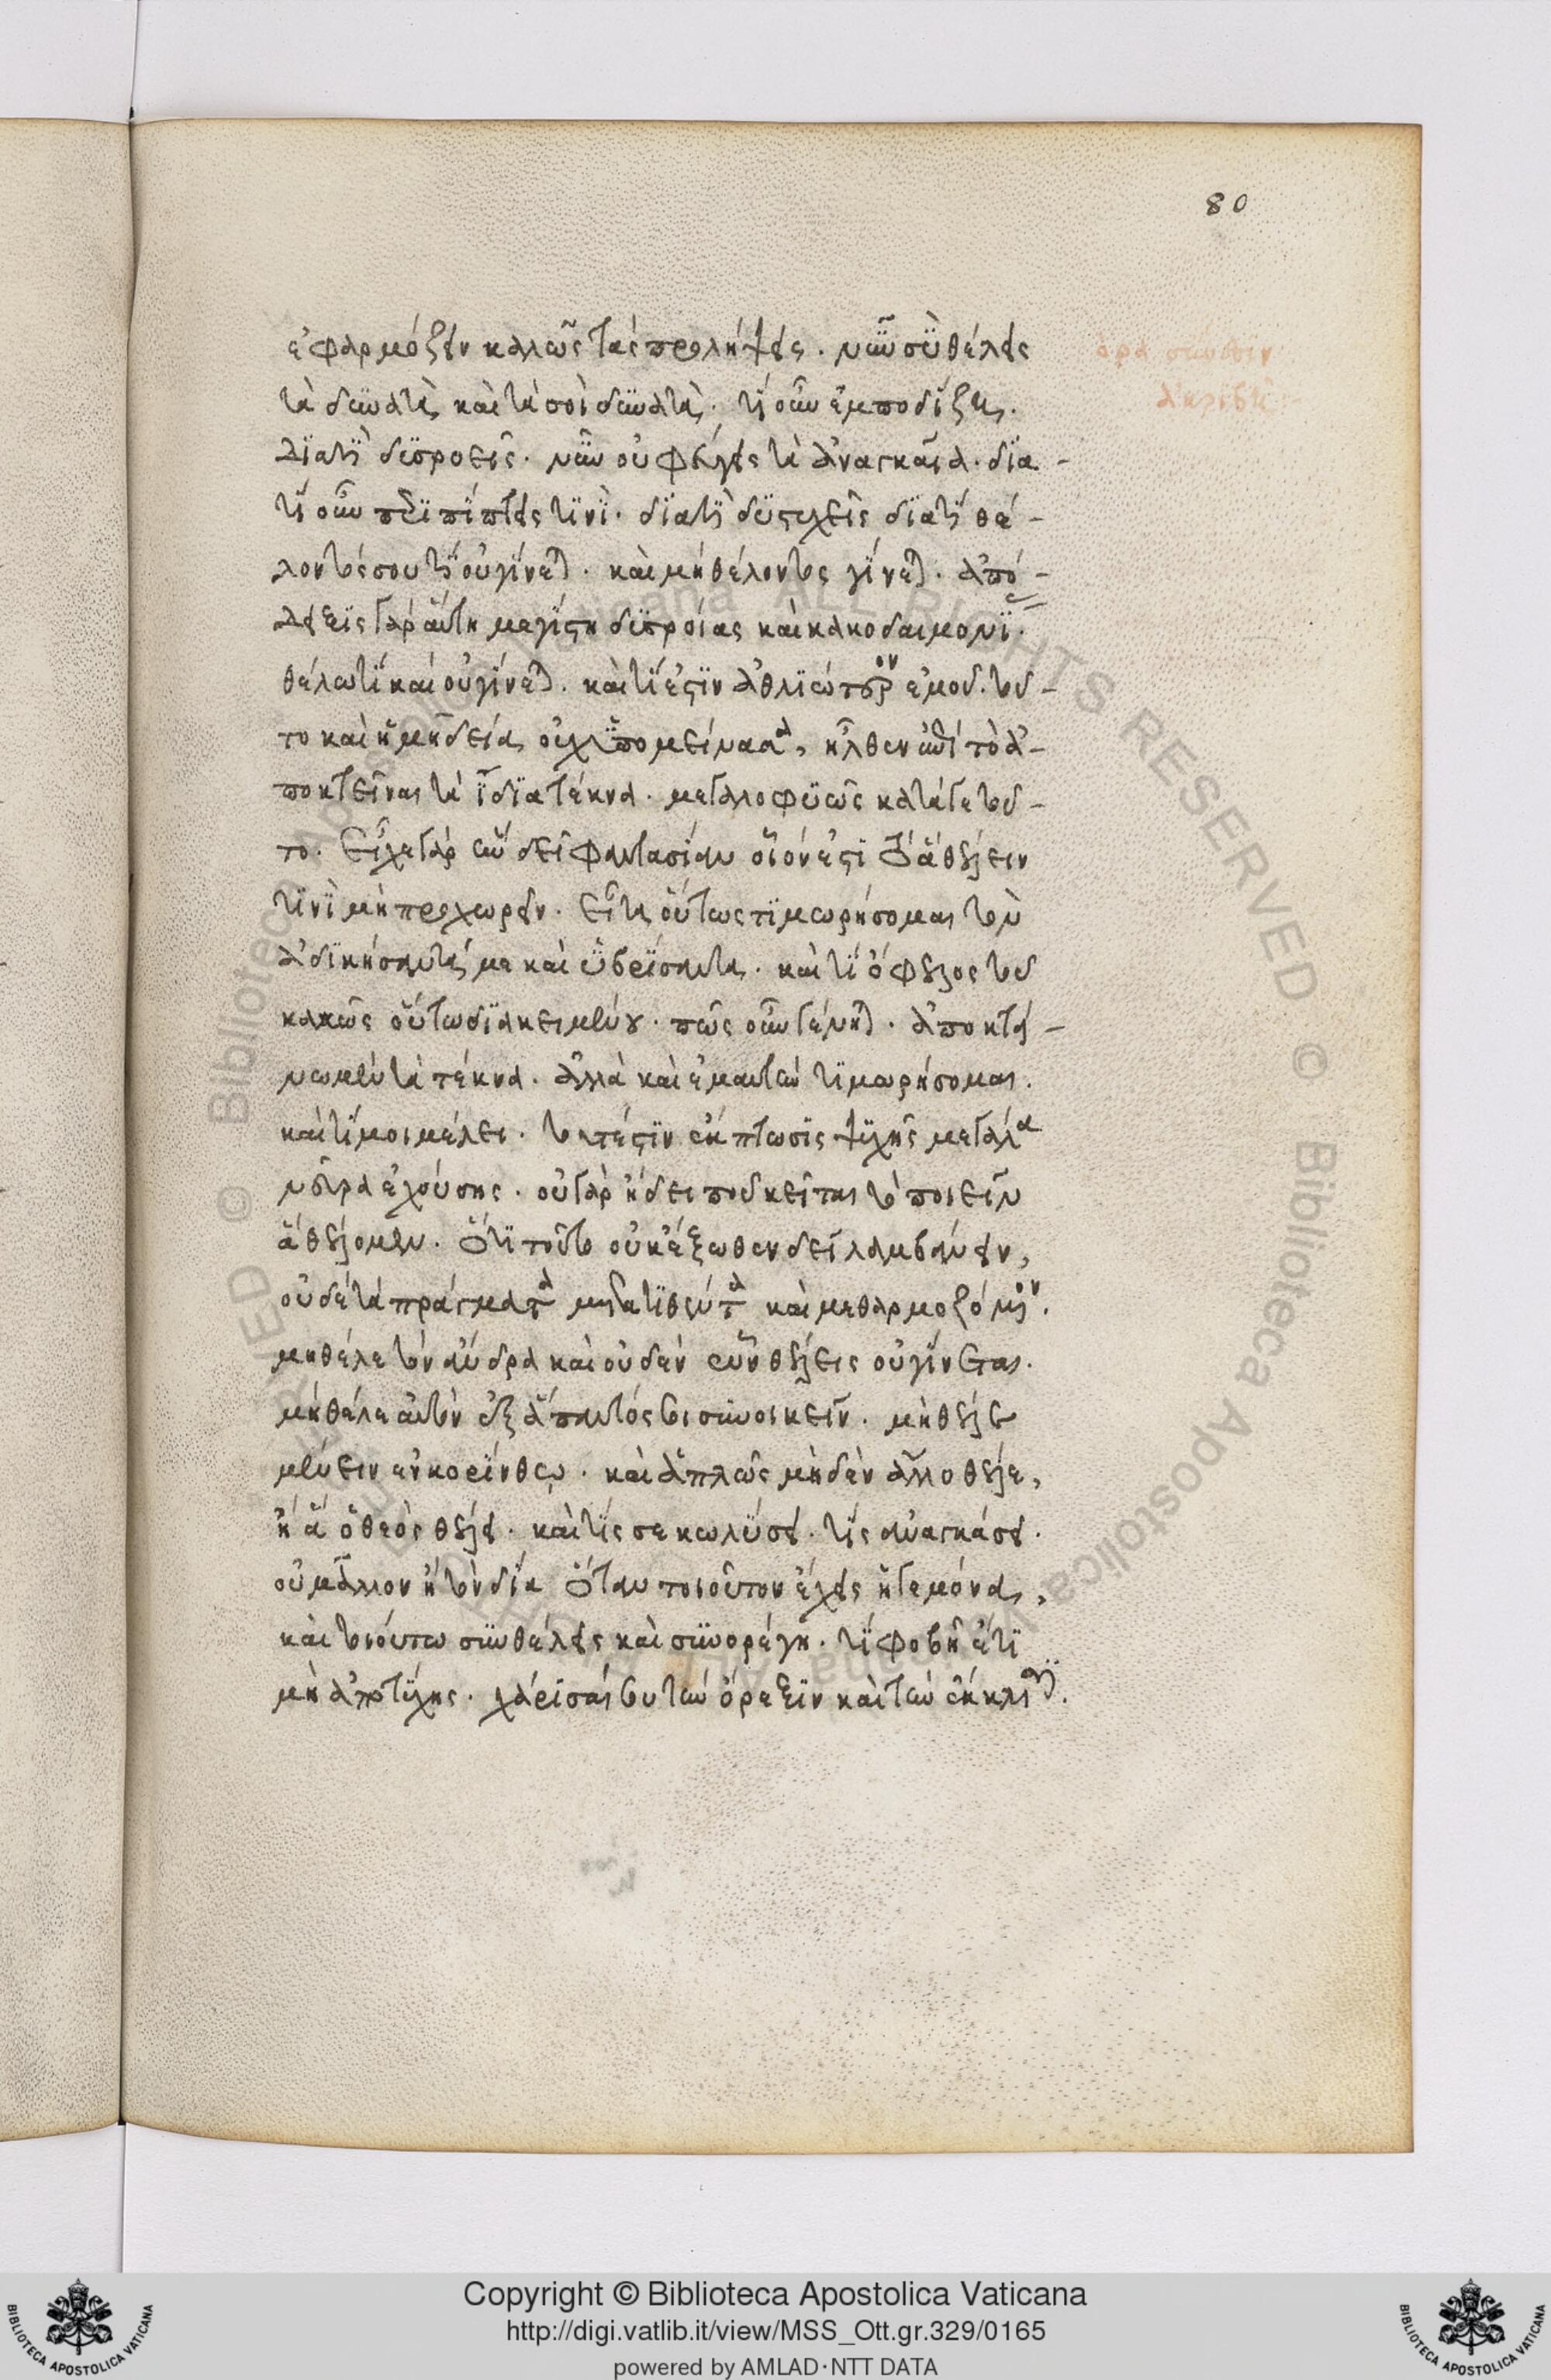 80
ἐφαρμόζειν καλῶς τὰς προλήψεις. νῦν σὺ θέλεις
τὰ δυνατὰ, καὶ τὰ σοὶ δυνατὰ. τί οὖν ἐμποδίζῃ.
διατὶ δυσροεῖς. νῦν οὐ φεύγεις τὰ ἀναγκαῖα. δια-
τί οὖν περιπίπτεις τινὶ. διατὶ δυστυχεῖς διατί θέ-
λοντός σου τί οὐ γίνεται. καὶ μὴ θέλοντος γίνεται. ἀπό-
δειξις γὰρ αὕτη μεγίστη δυσροίας καὶ κακοδαιμονί.
θέλω τί καὶ οὐ γίνεται. καὶ τί ἐστιν ἀθλιώτερον ἐμοῦ. τοῦ-
το καὶ ἡ μήδεια, οὐχ ὑπομείνασα, ἦλθεν ἐπὶ τὸ ἀ-
ποκτεῖναι τὰ ἴδια τέκνα. μεγαλοφυῶς κατάγε τοῦ-
το. εἶχε γὰρ ἣν δεῖ φαντασίαν οἷόν ἐστι τὸ ἃ θέλει
τινὶ μὴ προχωρεῖν. εἶτα οὕτως τιμωρήσομαι τὸν
ἀδικήσαντά με καὶ ὑβρίσαντα. καὶ τί ὄφελος τοῦ
κακῶς οὕτω διακειμένου. πῶς οὖν γένηται. ἀποκτεί-
νω μὲν τὰ τέκνα. ἀλλὰ καὶ ἐμαυτὴν τιμωρήσομαι.
καὶ τί μοι μέλει. τοῦτ' ἔστιν ἔκπτωσις ψυχῆς μεγάλα
νεῦρα ἐχούσης. οὐ γὰρ ᾔδει ποῦ κεῖται τὸ ποιεῖν
ἃ θέλομεν. ὅτι τοῦτο οὐκ ἔξωθεν δεῖ λαμβάνειν,
οὐδὲ τὰ πράγματα μετατιθέντα καὶ μεθαρμοζόμενον.
μὴ θέλε τὸν ἄνδρα καὶ οὐδὲν ὧν θέλεις οὐ γίνεται.
μὴ θέλε αὐτὸν ἐξ ἅπαντός σοι συνοικεῖν. μὴ θέλε
μένειν ἐν κορίνθῳ. καὶ ἁπλῶς μηδὲν ἄλλο θέλε,
ἢ ἃ ὁ θεὸς θέλει. καὶ τίς σε κωλύσει. τίς ἀναγκάσει.
οὐ μᾶλλον ἢ τὸν δία ὅταν τοιοῦτον ἔχεις ἡγεμόνα,
καὶ τοιούτω συνθέλεις καὶ συνορέγῃ. τί φοβῇ ἔτι
μὴ ἀποτύχης. χάρισαί σου τὴν ὄρεξιν καὶ τὴν ἔκκλισιν.